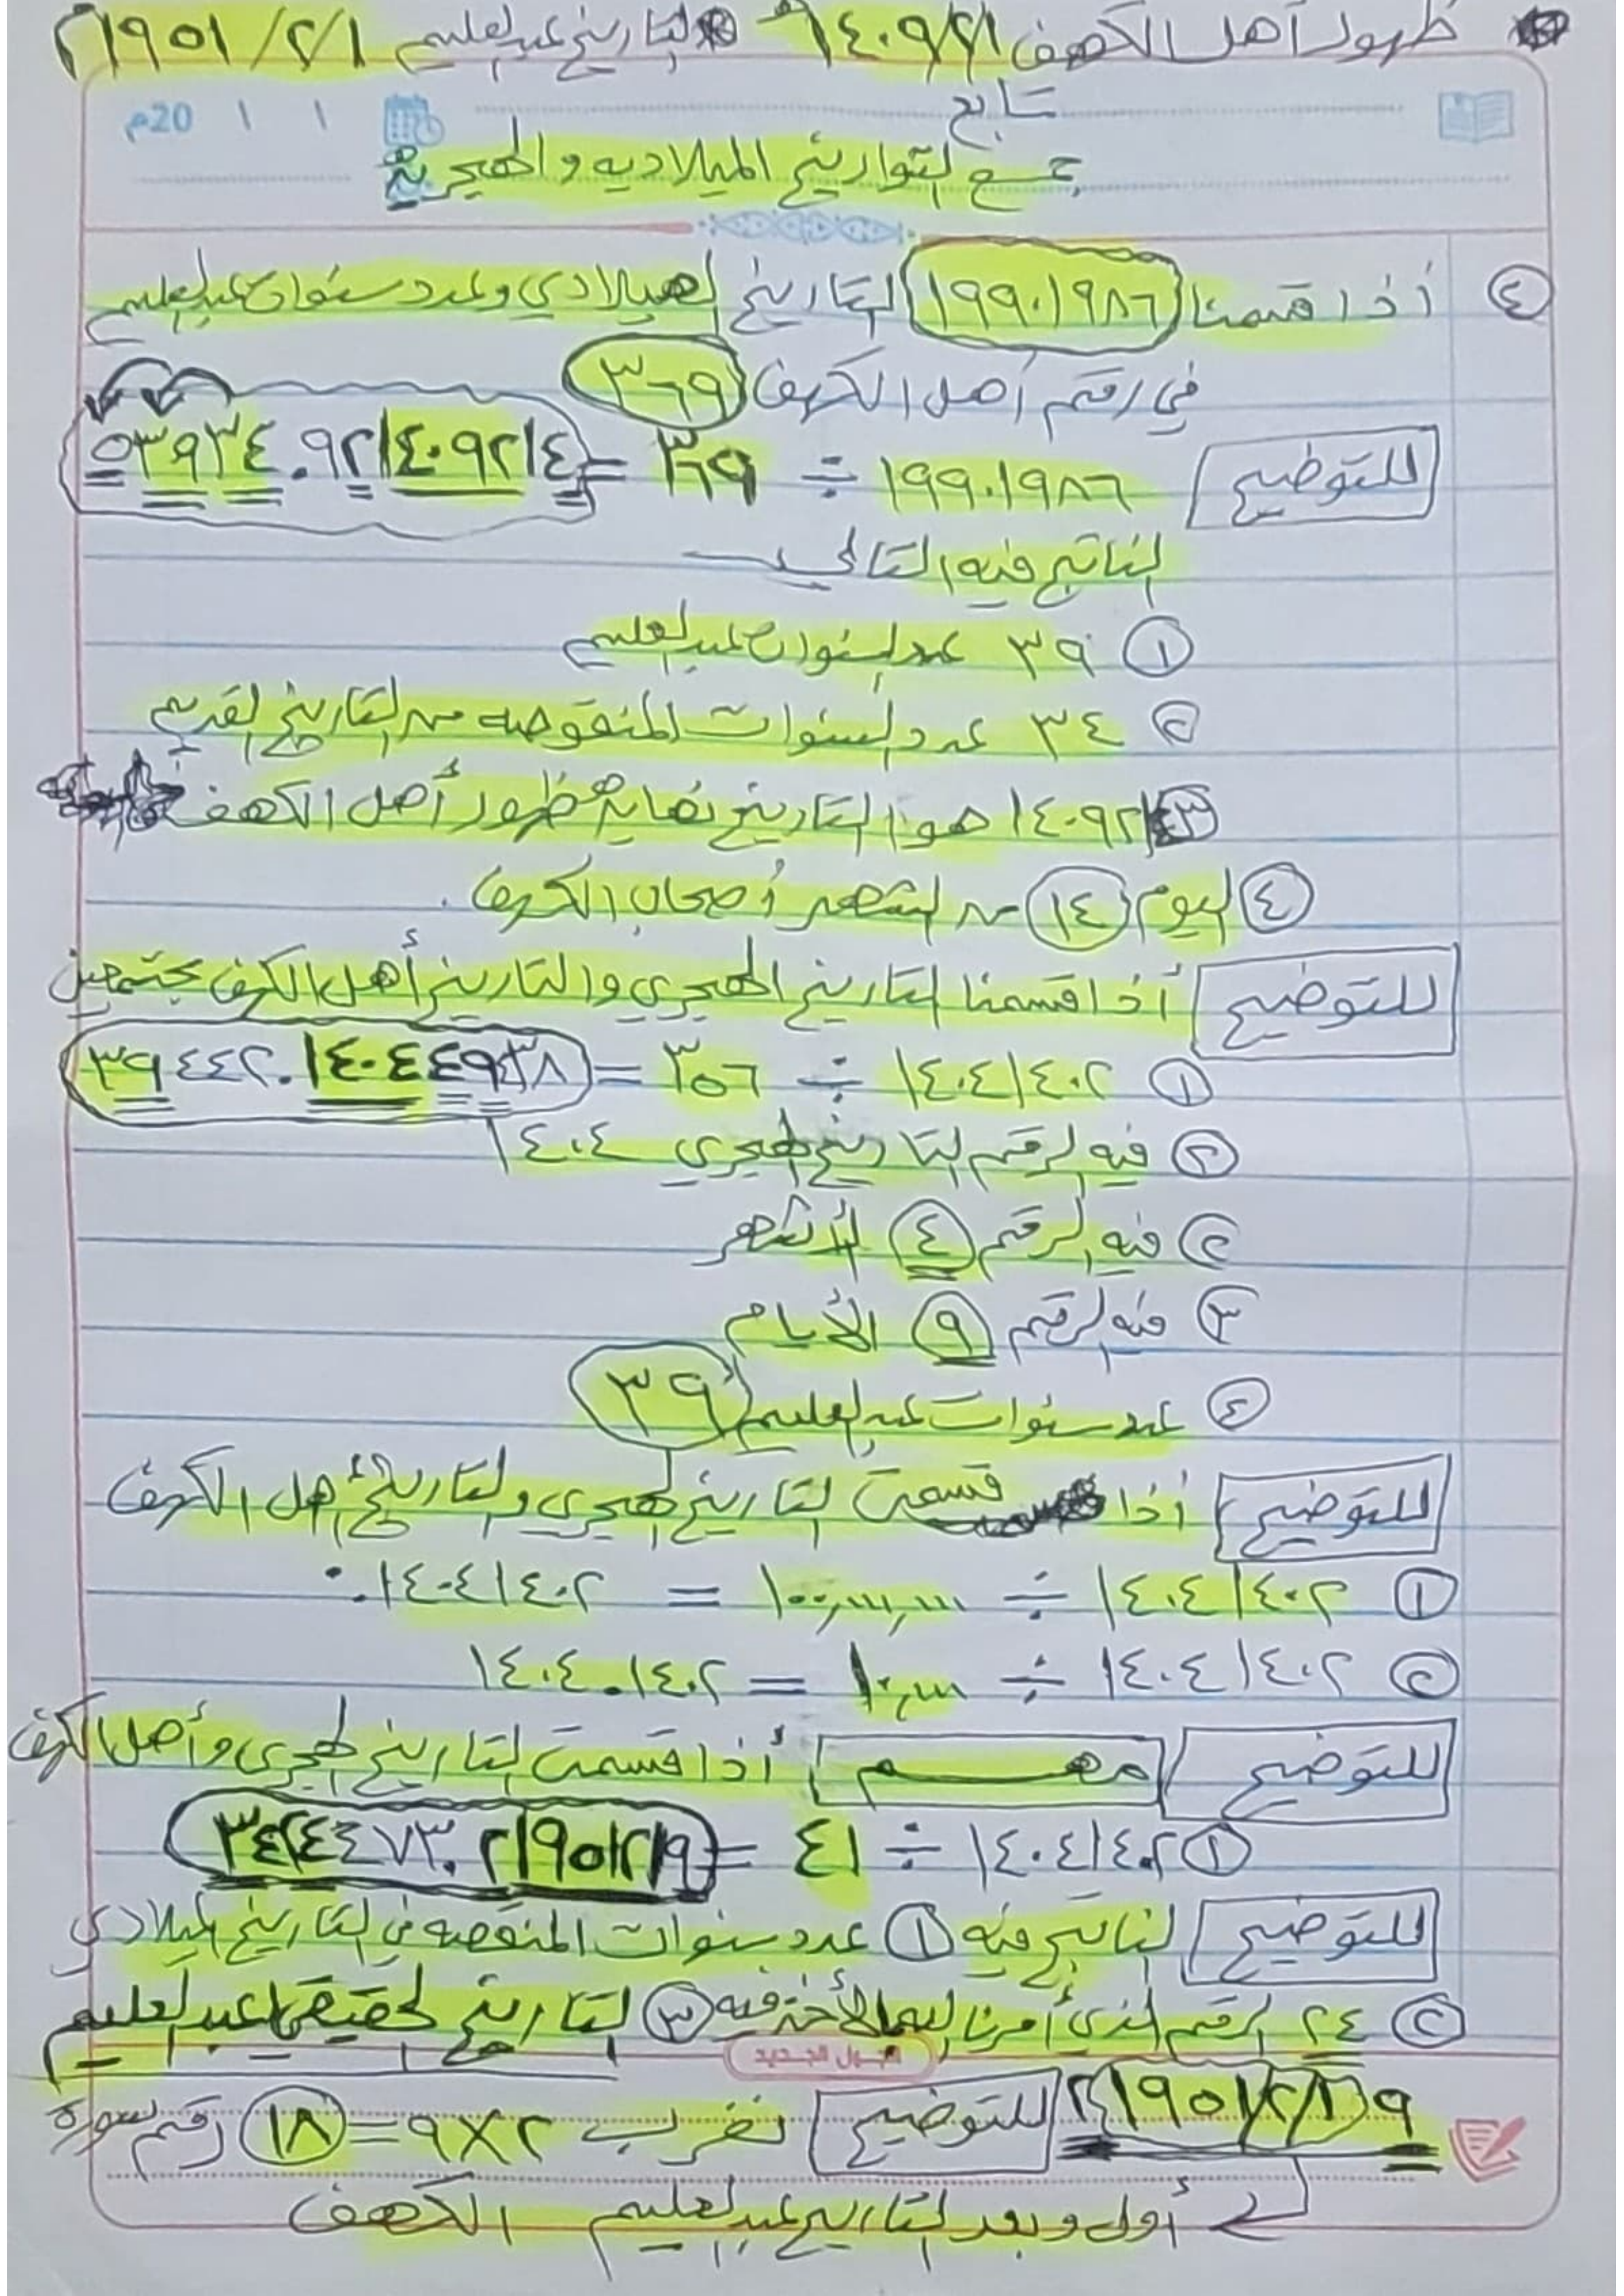 ظهور أهل الكهف ١٤٠٩/٢/١ التاريخ عبدالعليم ١٩٥١/٢/١
20م ١ ١
تابع
جمع التواريخ الميلاديه والهجرية
٤ أذا قسمنا ١٩٩٠١٩٨٦ التاريخ الميلادي وعدد سنوات عبدالعليم
في رقم أهل الكهف ٣٦٩
للتوضيح ١٩٩٠١٩٨٦ ÷ ٣٦٩ = ٥٣٩٣٤.٩٢١٤٠٩٢١٤
الناتج فيه التالي
١ ٣٩ عدد سنوات عبدالعليم
٢ ٣٤ عدد السنوات المنقوصه من التاريخ القديم
٣ ١٤٠٩٢١ هو التاريخ نهاية ظهور أهل الكهف
٤ اليوم ١٤ من الشهر أصحاب الكهف.
للتوضيح أذا قسمنا التاريخ الهجري والتاريخ أهل الكهف مجتمعين
١ ١٤٠٤١٤٠٢ ÷ ٣٥٦ = ٣٩٤٤٢.١٤٠٤٤٩٤٣٨
٢ فيه الرقم التاريخ الهجري ١٤٠٤
٢ فيه الرقم ٤ الأشهر
٣ فيه الرقم ٩ الأيام
٤ عدد سنوات عبدالعليم ٣٩
للتوضيح أذا قسمت التاريخ الهجري والتاريخ أهل الكهف
١ ١٤٠٤١٤٠٢ ÷ ١٠٠,٠٠٠,٠٠٠ = ٠.١٤٠٤١٤٠٢
٢ ١٤٠٤١٤٠٢ ÷ ١٠,٠٠٠ = ١٤٠٤.١٤٠٢
للتوضيح مهم أذا قسمت التاريخ الهجري وأهل الكهف
١ ١٤٠٤١٤٠٢ ÷ ٤١ = ٣٤٢٤٤٧٣.٢١٩٥١٢١٩
للتوضيح الناتج فيه ١ عدد سنوات المنقصه في التاريخ الميلادي
٢ ٢٤ الرقم الذي أمرنا اليماني الأخذ فيه ٣ التاريخ الحقيقي عبدالعليم
الجول الجديد
٩ ١٩٥١/٢/١ ٢ للتوضيح نضرب ٢×٩=١٨ رقم سورة
أول وبعد التاريخ عبدالعليم الكهف